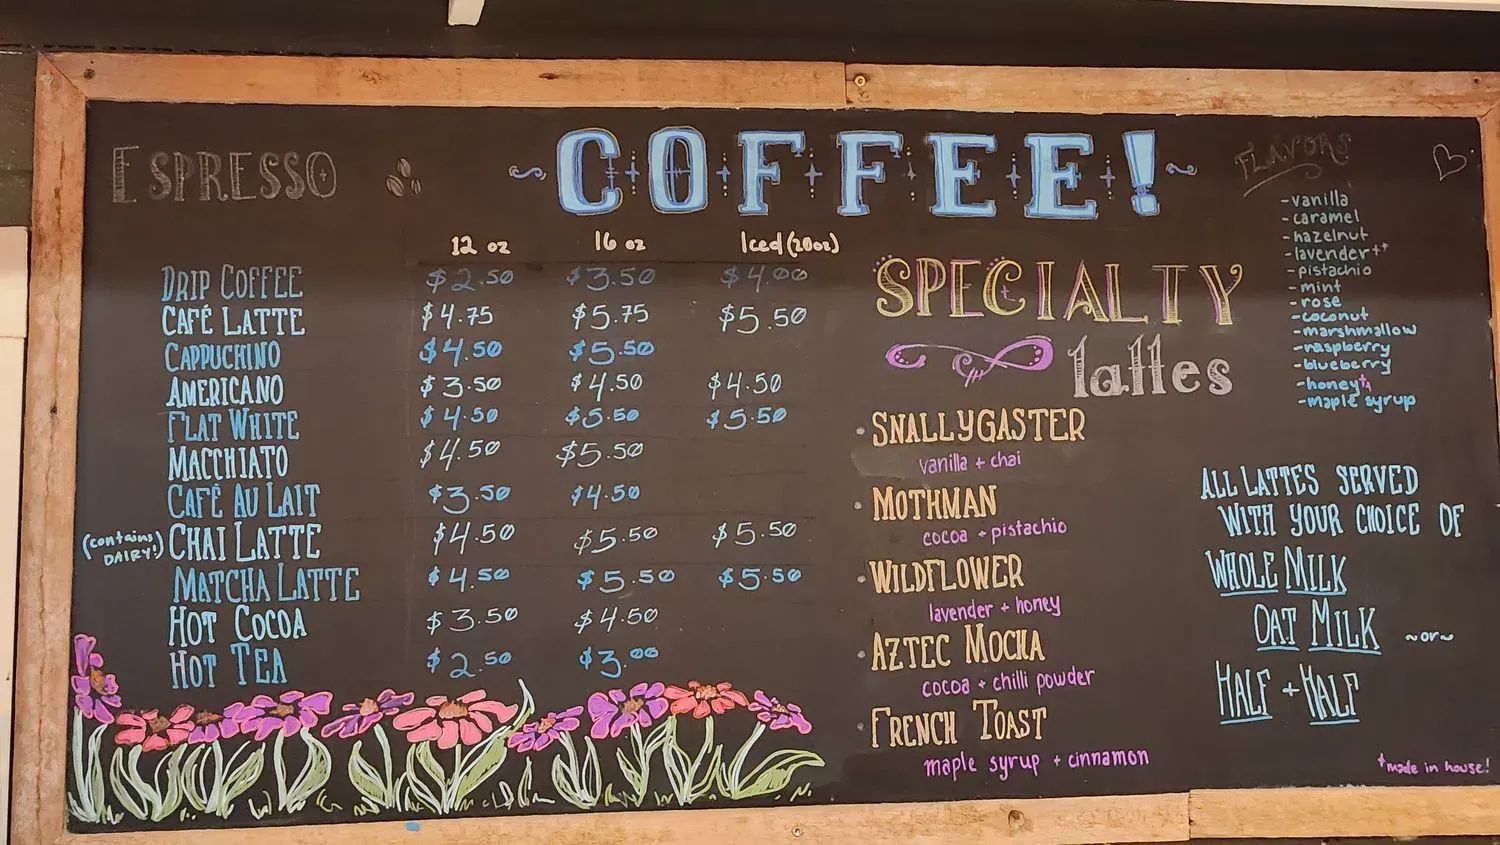 ESPRESSO
COFFEE!
FLAVORS
12 oz 16 oz Iced (20oz)
DRIP COFFEE $2.50 $3.50 $4.00
CAFÉ LATTE $4.75 $5.75 $5.50
CAPPUCHINO $4.50 $5.50
AMERICANO $3.50 $4.50 $4.50
FLAT WHITE $4.50 $5.50 $5.50
MACCHIATO $4.50 $5.50
CAFÉ AU LAIT $3.50 $4.50
(contains DAIRY!) CHAI LATTE $4.50 $5.50 $5.50
MATCHA LATTE $4.50 $5.50 $5.50
HOT COCOA $3.50 $4.50
HOT TEA $2.50 $3.00
SPECIALTY
lattes
• SNALLYGASTER
vanilla + chai
• MOTHMAN
cocoa + pistachio
• WILDFLOWER
lavender + honey
• AZTEC MOCHA
cocoa + chilli powder
• FRENCH TOAST
maple syrup + cinnamon
-vanilla
-caramel
-hazelnut
-lavender++
-pistachio
-mint
-rose
-coconut
-marshmallow
-raspberry
-blueberry
-honey+
-maple syrup
ALL LATTES SERVED
WITH YOUR CHOICE OF
WHOLE MILK
OAT MILK ~or~
HALF + HALF
+made in house!